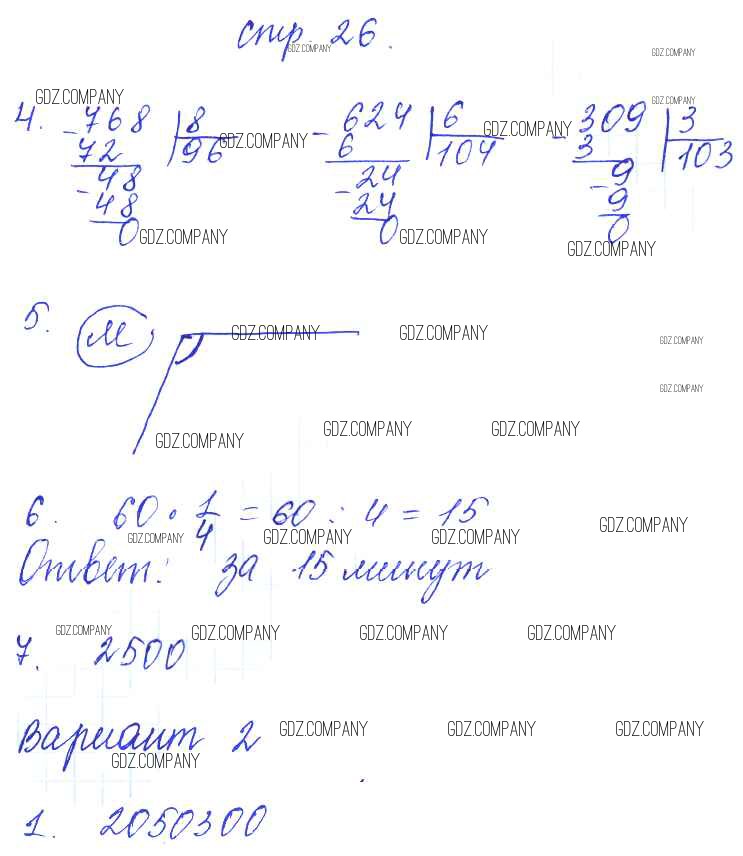 стр. 26.
GDZ.COMPANY GDZ.COMPANY
GDZ.COMPANY GDZ.COMPANY
4. - 768 | 8 - 624 | 6 - 309 | 3
GDZ.COMPANY GDZ.COMPANY
72 96 6 104 3 103
- 48 - 24 - 9
48 24 9
0 0 0
GDZ.COMPANY GDZ.COMPANY GDZ.COMPANY
5. М
GDZ.COMPANY GDZ.COMPANY GDZ.COMPANY
GDZ.COMPANY
GDZ.COMPANY GDZ.COMPANY GDZ.COMPANY
6. 60 · 1/4 = 60 : 4 = 15
GDZ.COMPANY GDZ.COMPANY GDZ.COMPANY GDZ.COMPANY
Ответ: за 15 минут
GDZ.COMPANY GDZ.COMPANY GDZ.COMPANY GDZ.COMPANY
7. 2500
Вариант 2
GDZ.COMPANY GDZ.COMPANY GDZ.COMPANY
GDZ.COMPANY
1. 2050300